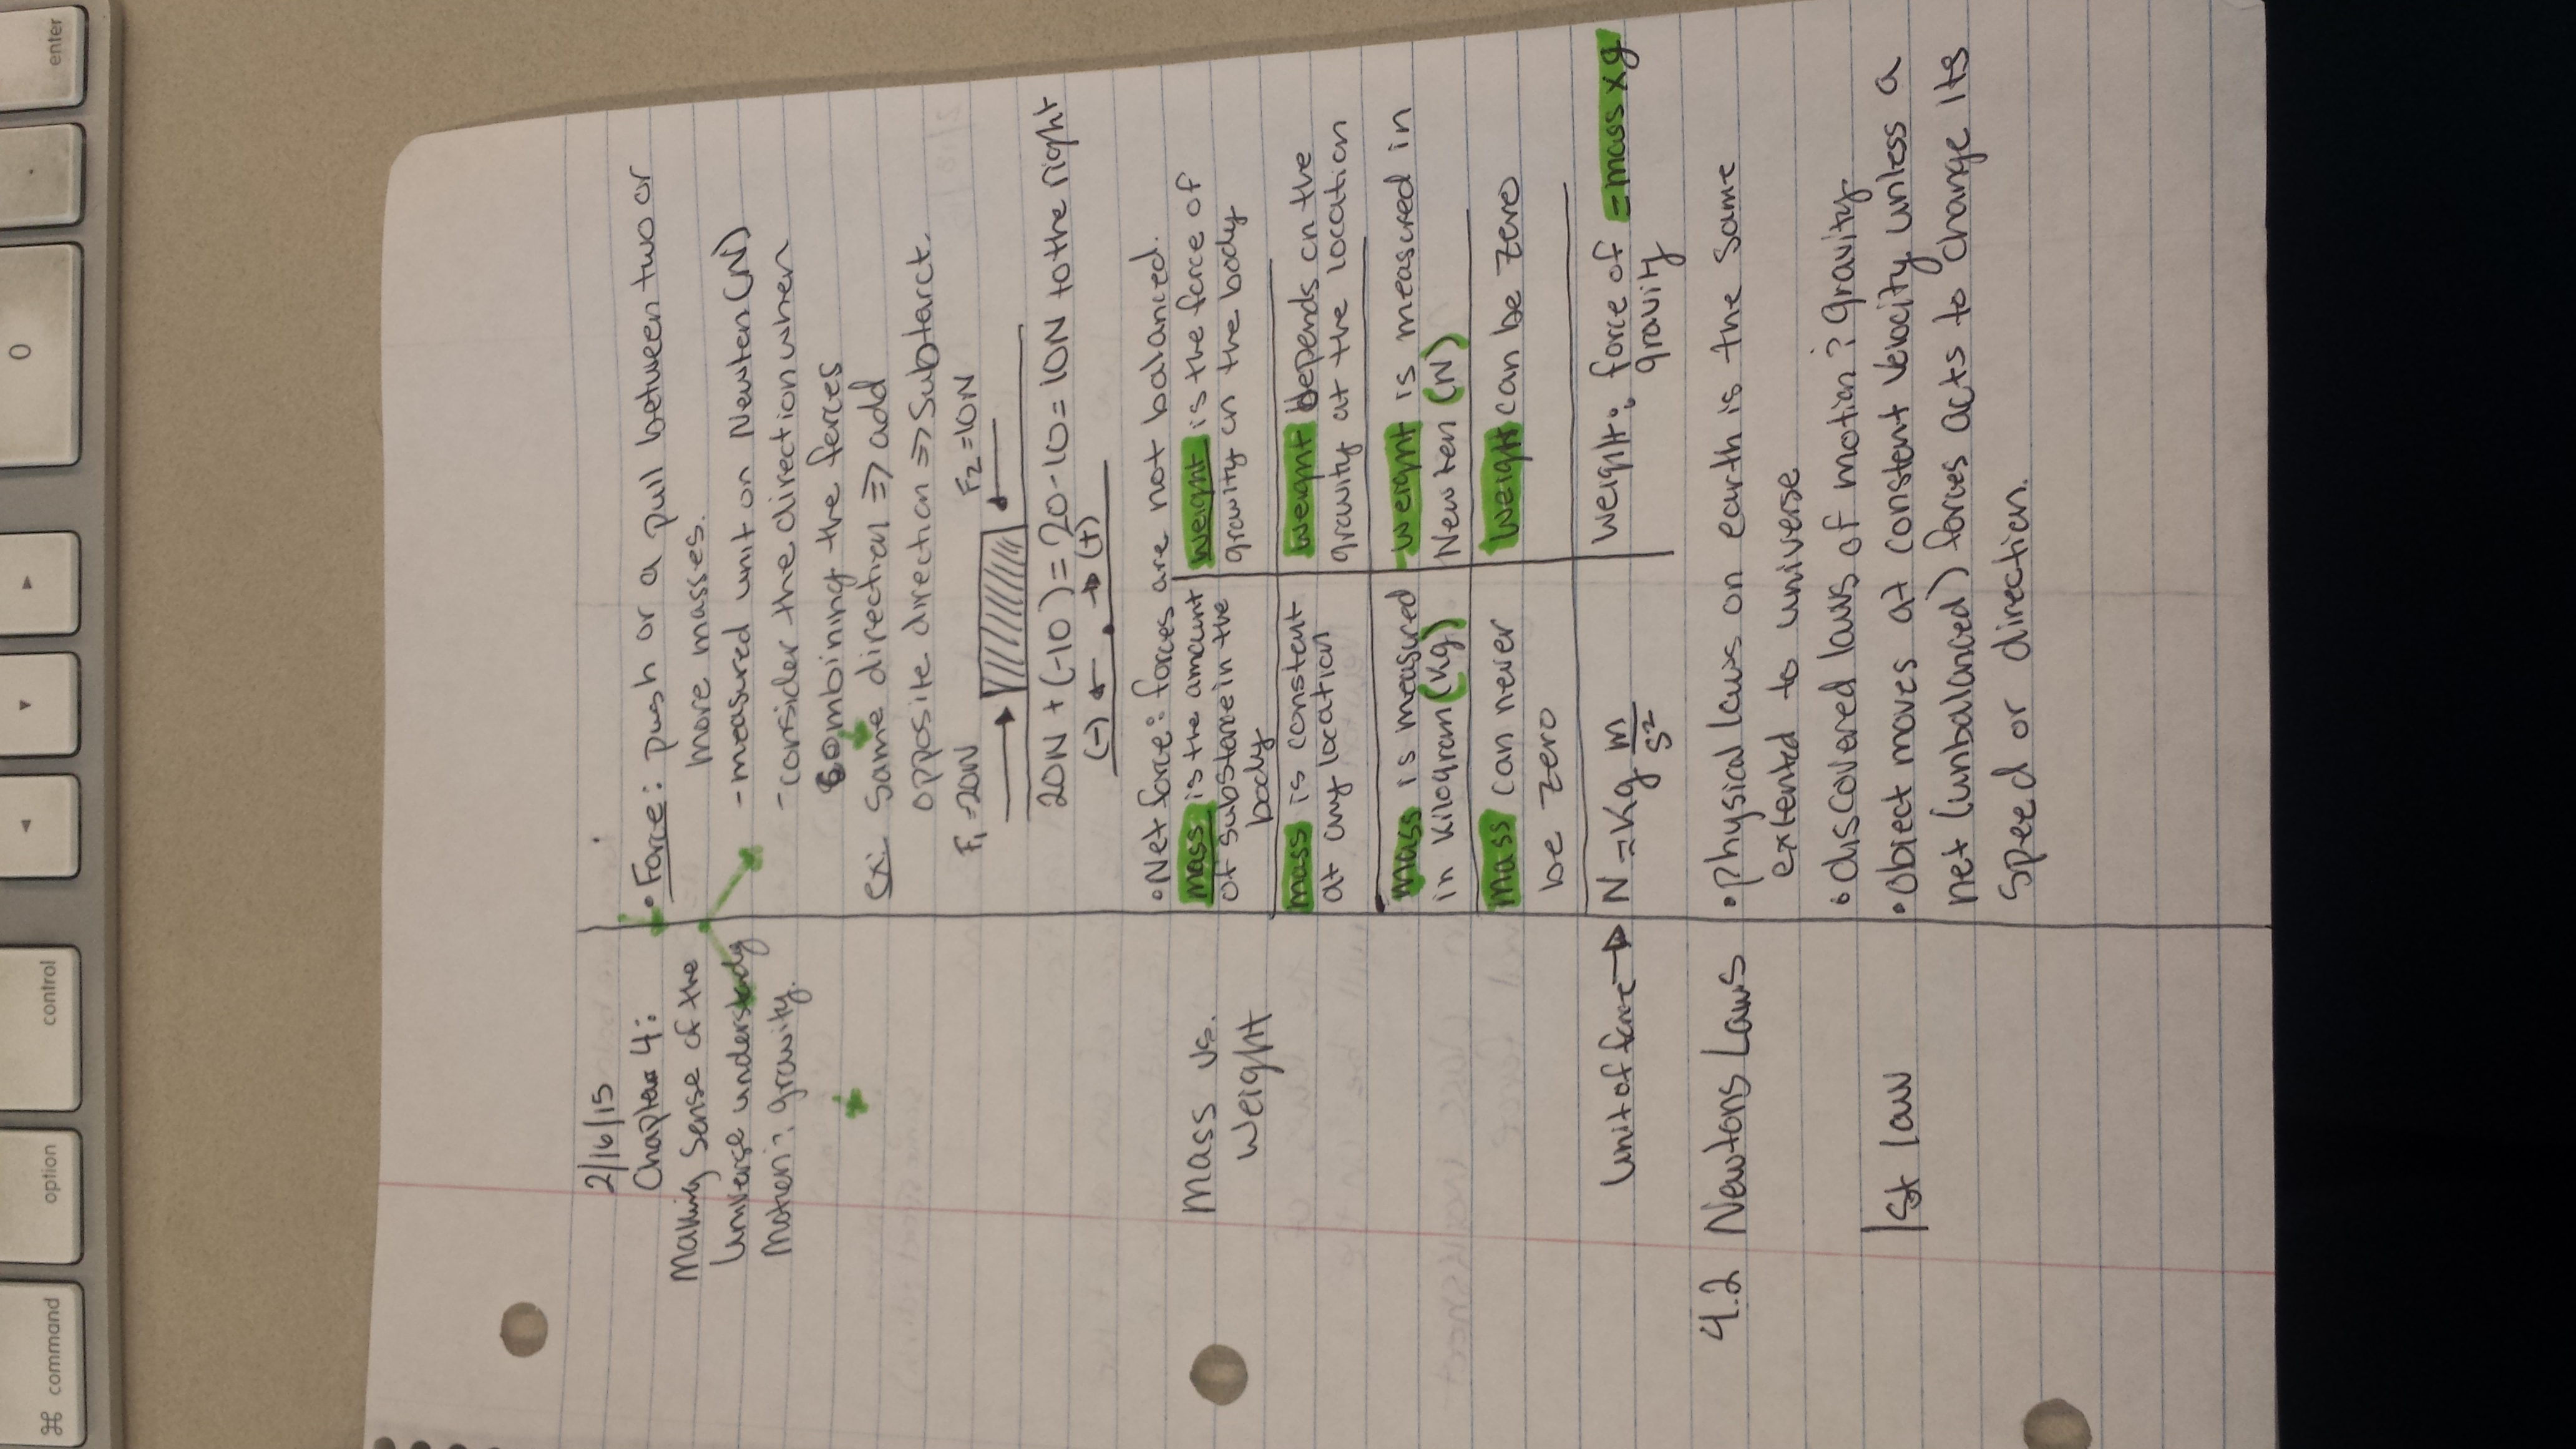 2/16/15
Chapter 4:
Making Sense of the
Universe understandy
Motion: gravity.
• Force: push or a pull between two or
more masses.
- measured unit on Newton (N)
- consider the direction when
combining the forces
Ex: Same direction => add
opposite direction => Subtarct.
F1 = 20N F2 = 10N
20N + (-10) = 20 - 10 = 10N to the right
(-) ← • → (+)
• Net force: forces are not balanced.
Mass vs.
Weight
mass is the amount
of substance in the
body
weight is the force of
gravity on the body
mass is constant
at any location
weight depends on the
gravity at the location
mass is measured
in kilogram (kg)
weight is measured in
Newton (N)
mass can never
be zero
weight can be zero
Unit of force → N = Kg m/s²
weight: force of = mass x g
gravity
4.2 Newtons Laws
• physical laws on earth is the same
extented to universe
• discovered laws of motion ? gravity
1st law
• object moves at constent velocity unless a
net (unbalanced) forces acts to change its
speed or direction.
enter
.
0
control
option
⌘ command